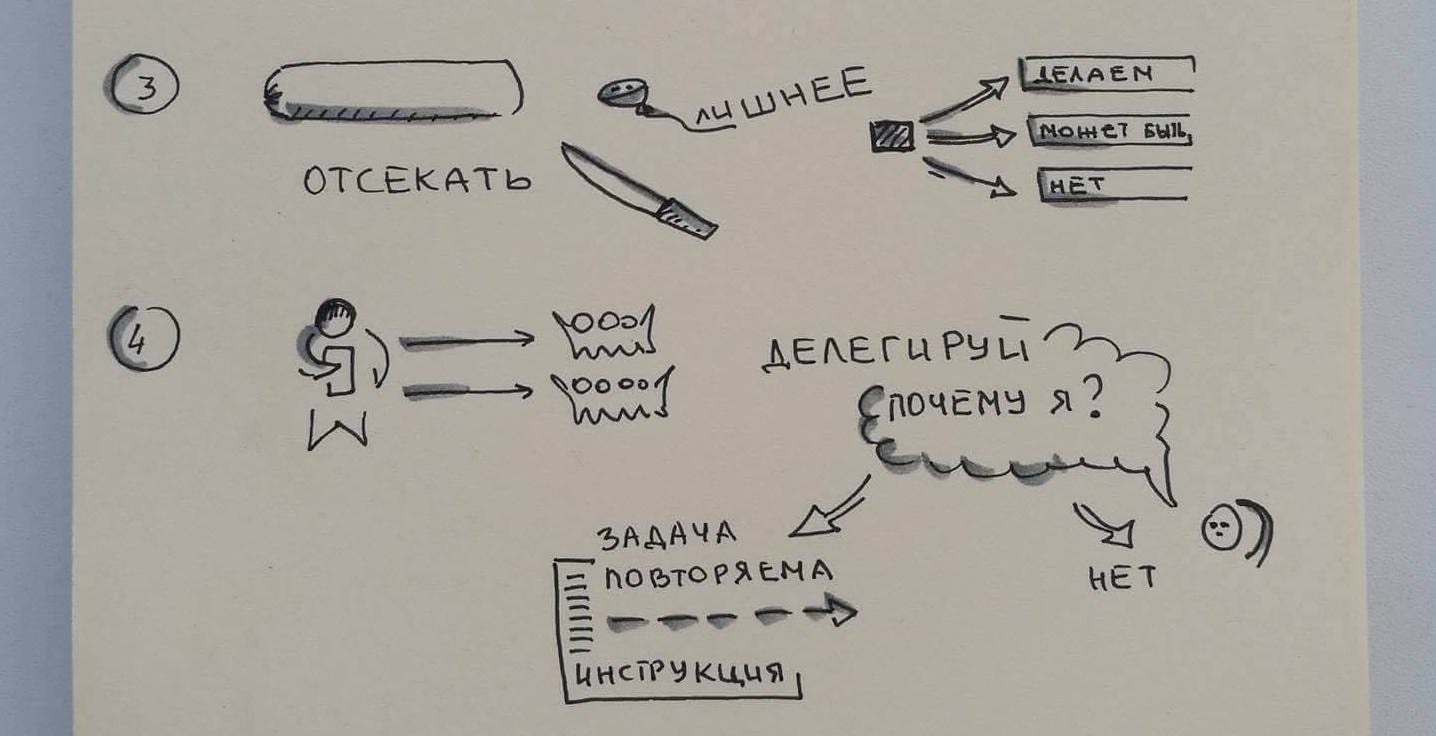 3
ОТСЕКАТЬ
ЛИШНЕЕ
ДЕЛАЕМ
МОЖЕТ БЫТЬ
НЕТ
4
ДЕЛЕГИРУЙ
ПОЧЕМУ Я?
ЗАДАЧА
ПОВТОРЯЕМА
ИНСТРУКЦИЯ
НЕТ